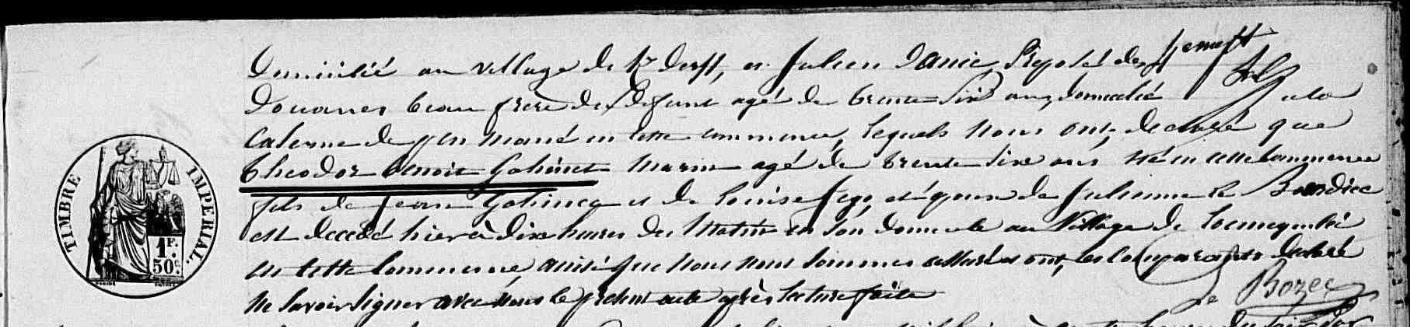 Domicilié au village de Kr derff, et Julien Danic, Préposé des
Douanes beau frère du défunt agé de trente six ans, domicilié à la
Caserne de en cette commune, lesquels nous ont declaré que
Theodor Benoit Gahinet Marin agé de trente six ans né en cette Commune
fils de Jean Gahinet et de Louise et époux de Julienne le
est decedé hier à dix heures du Matin en son domicile au Village de
en cette Commune ainsi que nous nous sommes assurés et ont, les comparants declaré
ne savoir signer avec nous le présent acte après lecture faite
Le Bozec
TIMBRE IMPERIAL.
1 F.
50 c.